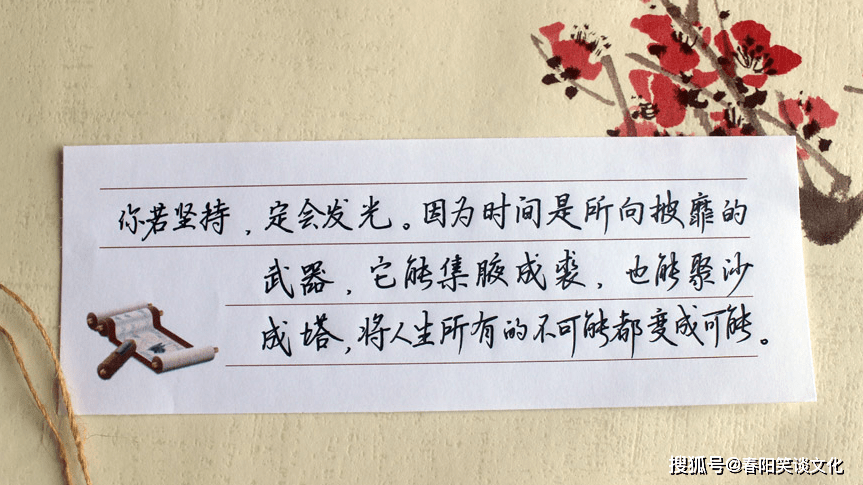 你若坚持，定会发光。因为时间是所向披靡的
武器，它能集腋成裘，也能聚沙
成塔，将人生所有的不可能都变成可能。
搜狐号@春阳笑谈文化